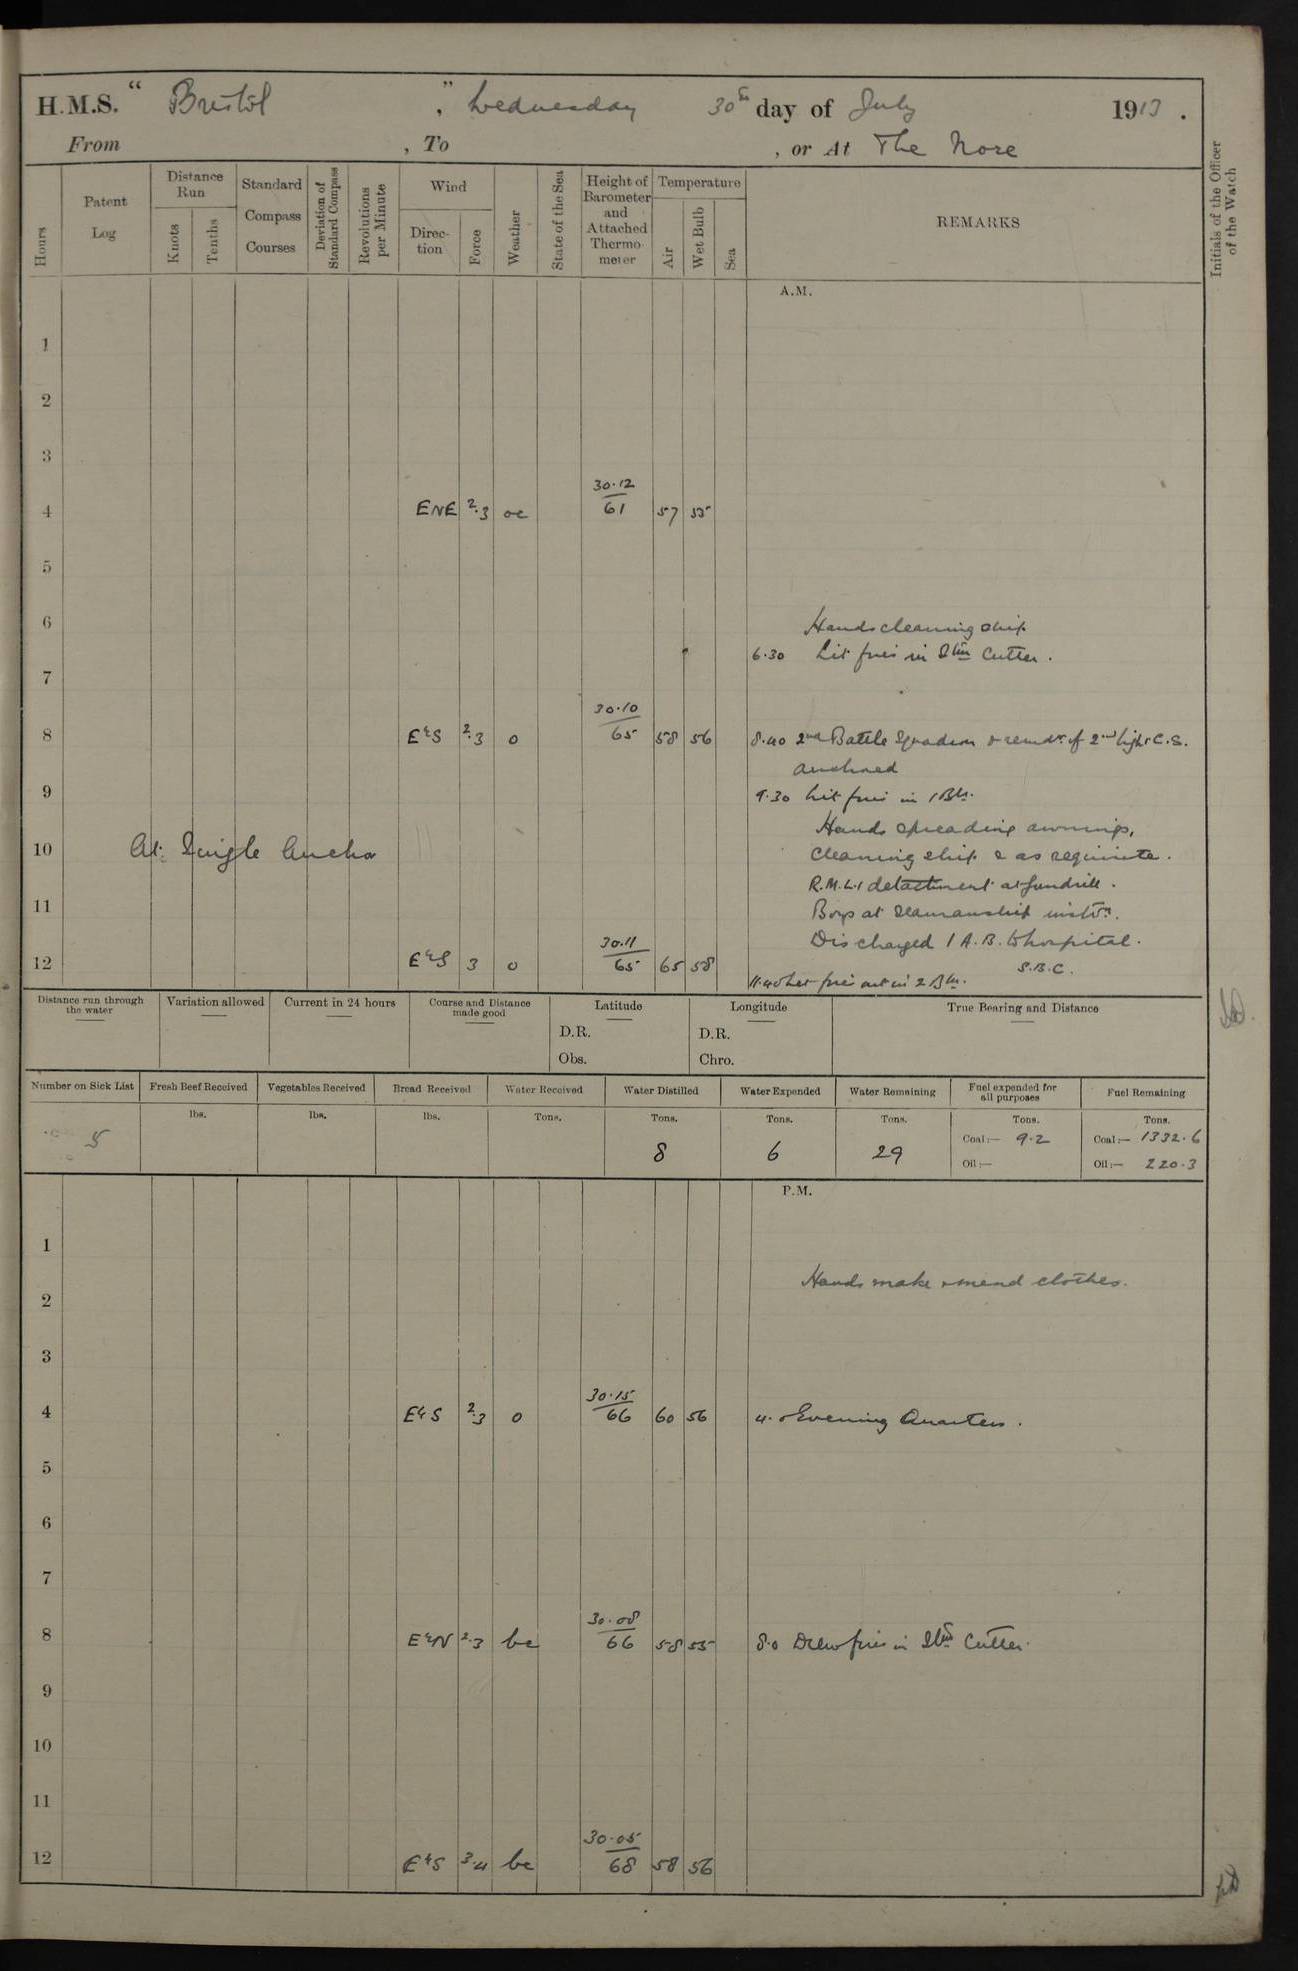 H.M.S. “ Bristol ”, Wednesday 30th day of July 1913.
From , To , or At The Nore
Hours
Patent Log
Distance Run
Knots
Tenths
Standard Compass Courses
Deviation of Standard Compass
Revolutions per Minute
Wind
Direction
Force
Weather
State of the Sea
Height of Barometer and Attached Thermometer
Temperature
Air
Wet Bulb
Sea
REMARKS
Initials of the Officer of the Watch
A.M.
1
2
3
4 ENE 2.3 oc 30.12 61 57 55
5
6 Hands cleaning ship
6.30 Lit fires in Stm Cutter.
7
8 E&S 2.3 o 30.10 65 58 56 8.40 2nd Battle Squadron & remdr of 2nd light C.S.
anchored
9 9.30 Lit fires in 1 Blr.
Hands spreading awnings,
10 At Single Anchor cleaning ship & as requisite.
R.M.L.I detachment at gundrill.
11 Boys at Seamanship instrn.
Discharged 1 A.B. to hospital.
12 E&S 3 o 30.11 65 65 58 S.B.C.
11.40 Let fires out in 2 Blr.
Distance run through the water
Variation allowed
Current in 24 hours
Course and Distance made good
Latitude
D.R.
Obs.
Longitude
D.R.
Chro.
True Bearing and Distance
Number on Sick List Fresh Beef Received Vegetables Received Bread Received Water Received Water Distilled Water Expended Water Remaining Fuel expended for all purposes Fuel Remaining
lbs. lbs. lbs. Tons. Tons. Tons. Tons. Tons. Tons.
5 8 6 29 Coal:— 9.2 Coal:— 1332.6
Oil:— Oil:— 220.3
P.M.
1
Hands make & mend clothes.
2
3
4 E&S 2.3 o 30.15 66 60 56 4.0 Evening Quarters.
5
6
7
8 E&N 2.3 bc 30.08 66 58 55 8.0 Drew fires in Stm Cutter.
9
10
11
12 E&S 3.4 bc 30.05 68 58 56